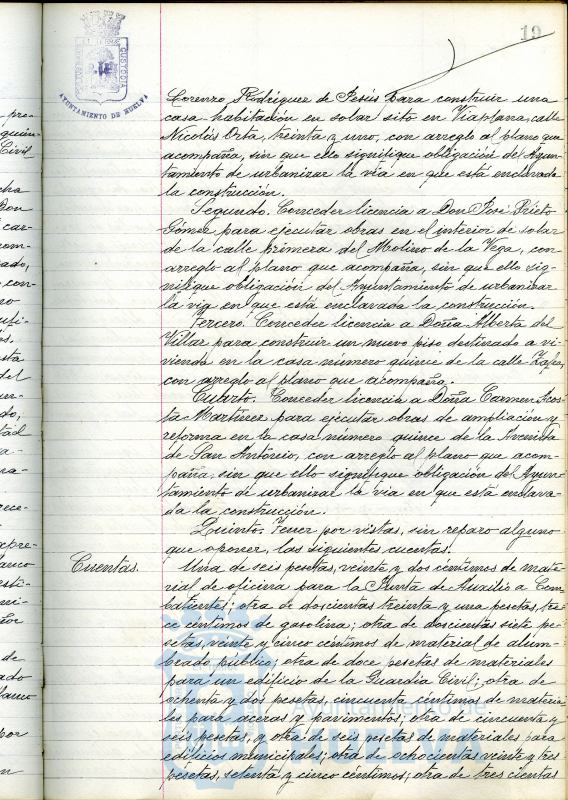 19
AYUNTAMIENTO DE HUELVA
Lorenzo Rodríguez de Jesús para construir una
casa-habitación en solar sito en Viaplana, calle
Nicolás Orta, treinta y uno, con arreglo al plano que
acompaña, sin que ello signifique obligación del Ayun-
tamiento de urbanizar la via en que está enclavada
la construcción.
Segundo. Conceder licencia a Don José Prieto
Gómez para ejecutar obras en el interior de solar
de la calle primera del Molino de la Vega, con
arreglo al plano que acompaña, sin que ello sig-
nifique obligación del Ayuntamiento de urbanizar
la via en que está enclavada la construcción.
Tercero. Conceder licencia a Doña Alberta del
Villar para construir un nuevo piso destinado a vi-
vienda en la casa número quince de la calle Zafra,
con arreglo al plano que acompaña.
Cuarto. Conceder licencia a Doña Carmen Acos-
ta Martínez para ejecutar obras de ampliación y
reforma en la casa número quince de la Avenida
de San Antonio, con arreglo al plano que acom-
paña, sin que ello signifique obligación del Ayun-
tamiento de urbanizar la via en que está enclava-
da la construcción.
Quinto. Tener por vistas, sin reparo alguno
que oponer, las siguientes cuentas.
Cuentas.
Una de seis pesetas, veinte y dos céntimos de mate-
rial de oficina para la Junta de Auxilio a Com-
batientes; otra de doscientas treinta y una pesetas, tre-
ce céntimos de gasolina; otra de doscientas siete pe-
setas, veinte y cinco céntimos de material de alum-
brado público; otra de doce pesetas de materiales
para un edificio de la Guardia Civil; otra de
ochenta y dos pesetas, cincuenta céntimos de materia-
les para aceras y pavimentos; otra de cincuenta y
seis pesetas, y otra de seis pesetas de materiales para
edificios municipales; otra de ochocientas veinte y tres
pesetas, setenta y cinco céntimos; otra de trescientas
Ayuntamiento de
HUELVA